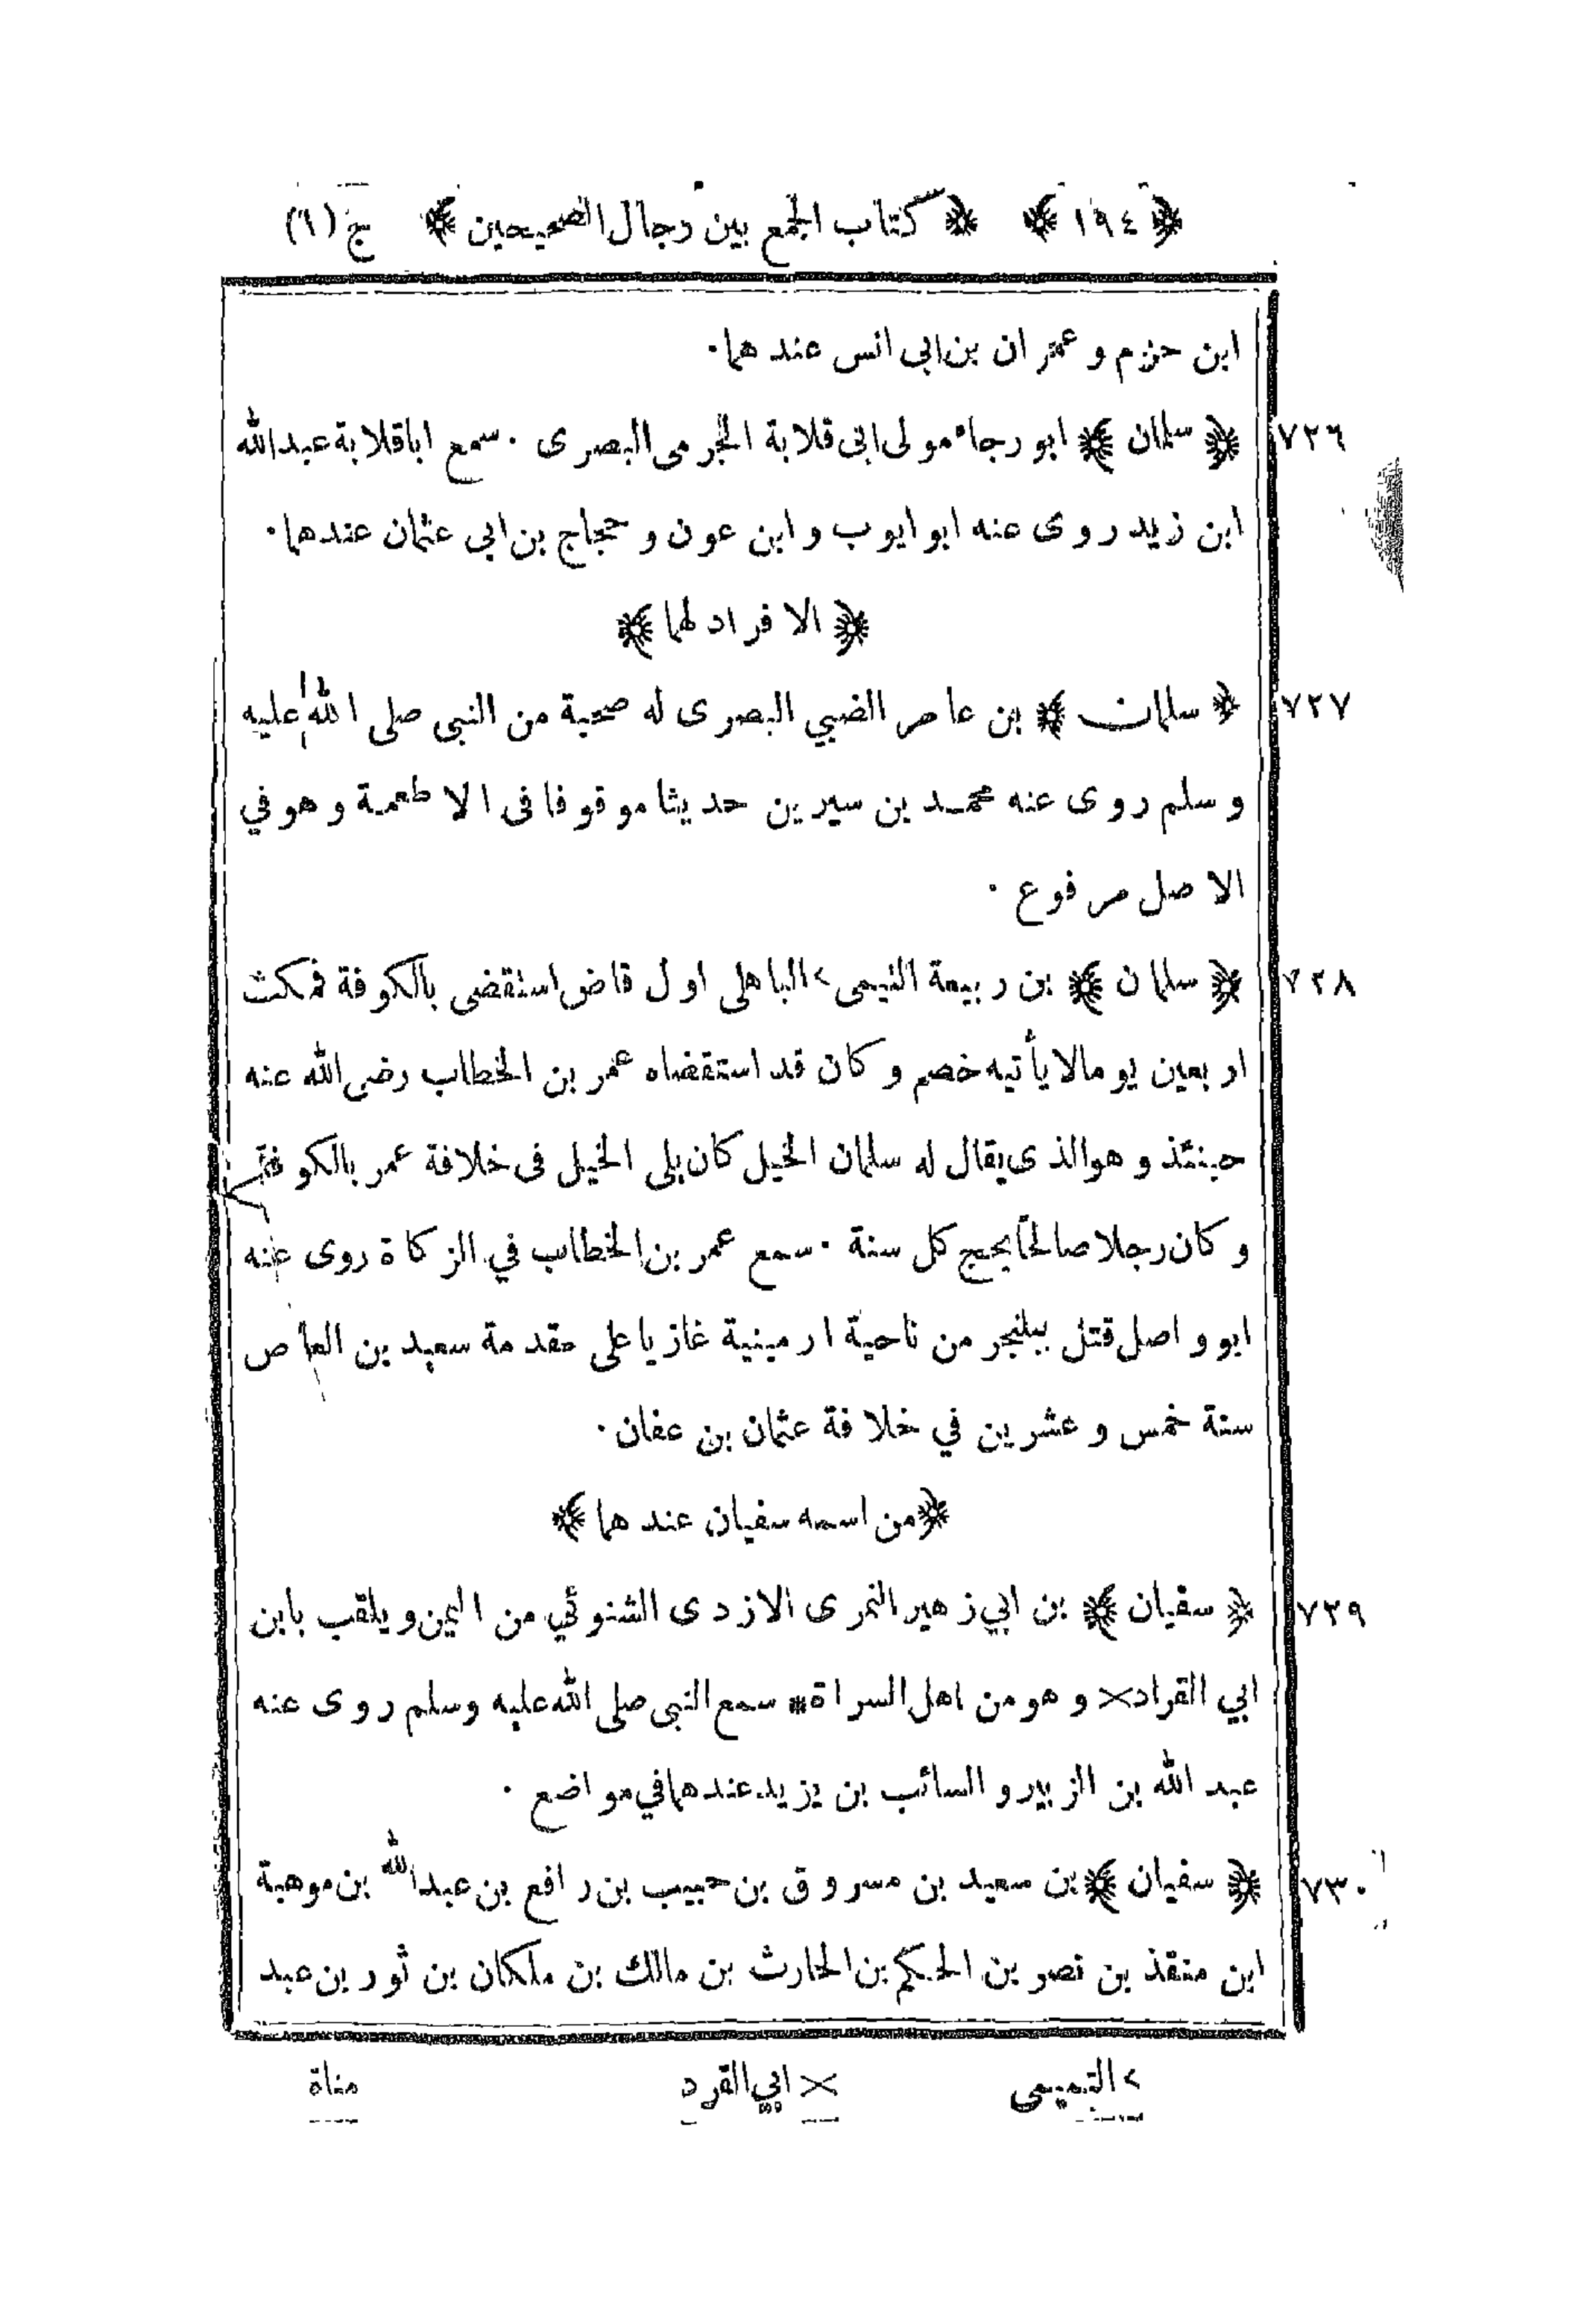 ﴿ ١٩٤ ﴾ ﴿ كتاب الجمع بين رجال الصحيحين ﴾ ج (١)
ابن حزم و عمران بن ابى انس عندهما ٠
٧٢٦ ﴿ سلمان ﴾ ابو رجاء مولى ابى قلابة الجرمى البصرى ٠ سمع ابا قلابة عبد الله
ابن زيد روى عنه ابو ايوب و ابن عون و حجاج بن ابي عثمان عندهما ٠
﴿ الافراد لهما ﴾
٧٢٧ ﴿ سلمان ﴾ بن عامر الضبي البصرى له صحبة من النبى صلى الله عليه
و سلم روى عنه محمد بن سيرين حديثا موقوفا فى الاطعمة و هو في
الاصل مرفوع ٠
٧٢٨ ﴿ سلمان ﴾ بن ربيعة التيمى > الباهلى اول قاض استقضى بالكوفة فمكث
اربعين يوما لا يأتيه خصم و كان قد استقضاه عمر بن الخطاب رضى الله عنه
حينئذ و هو الذى يقال له سلمان الخيل كان يلى الخيل فى خلافة عمر بالكوفة
و كان رجلا صالحاً يحج كل سنة ٠ سمع عمر بن الخطاب في الزكاة روى عنه
ابو واصل قتل ببلنجر من ناحية ارمينية غازيا على مقدمة سعيد بن العاص
سنة خمس و عشرين في خلافة عثمان بن عفان ٠
﴿ من اسمه سفيان عندهما ﴾
٧٢٩ ﴿ سفيان ﴾ بن ابي زهير النمرى الازدى الشنوئي من اليمن و يلقب بابن
ابي القراد × و هو من اهل السراة * سمع النبى صلى الله عليه وسلم روى عنه
عبد الله بن الزبير و السائب بن يزيد عندهما في مواضع ٠
٧٣٠ ﴿ سفيان ﴾ بن سعيد بن مسروق بن حبيب بن رافع بن عبد الله بن موهبة
ابن منقذ بن نصر بن الحكم بن الحارث بن مالك بن ملكان بن ثور بن عبد
> التميمى × ابي القرد مناة